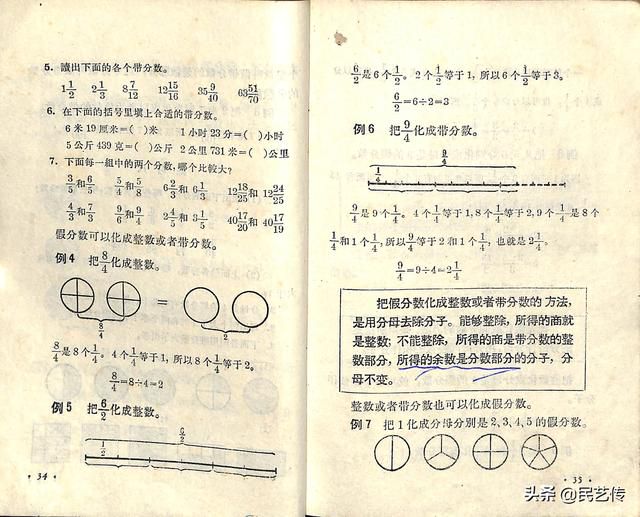 5. 讀出下面的各个带分数。
1 1/2  2 1/3  8 7/12  12 15/16  35 9/40  63 51/70
6. 在下面的括号里填上合适的带分数。
6 米 19 厘米=( )米  1 小时 23 分=( )小时
5 公斤 439 克=( )公斤  2 公里 731 米=( )公里
7. 下面每一组中的两个分数,哪个比較大?
3/5 和 6/5  5/4 和 5/8  6 2/3 和 6 1/3  12 18/25 和 12 24/25
4/3 和 7/3  9/6 和 9/4  2 4/5 和 3 1/5  40 17/20 和 40 17/19
假分数可以化成整数或者带分数。
例4 把 8/4 化成整数。
=
8/4
2
8/4 是 8 个 1/4。4 个 1/4 等于 1, 所以 8 个 1/4 等于 2。
8/4=8÷4=2
例5 把 6/2 化成整数。
6/2
1/2
· 34 ·
6/2 是 6 个 1/2。2 个 1/2 等于 1, 所以 6 个 1/2 等于 3。
6/2=6÷2=3
例6 把 9/4 化成带分数。
9/4
1/4
9/4 是 9 个 1/4。4 个 1/4 等于 1, 8 个 1/4 等于 2, 9 个 1/4 是 8 个
1/4 和 1 个 1/4, 所以 9/4 等于 2 和 1 个 1/4, 也就是 2 1/4。
9/4=9÷4=2 1/4
把假分数化成整数或者带分数的方法,
是用分母去除分子。能够整除, 所得的商就
是整数; 不能整除, 所得的商是带分数的整
数部分, 所得的余数是分数部分的分子, 分
母不变。
整数或者带分数也可以化成假分数。
例7 把 1 化成分母分别是 2,3,4,5 的假分数。
· 35 ·
头条 @民艺传